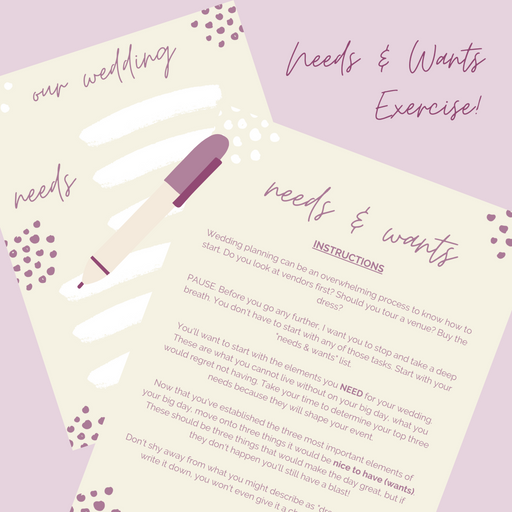 our wedding
needs
Needs & Wants
Exercise!
needs & wants
INSTRUCTIONS
Wedding planning can be an overwhelming process to know how to
start. Do you look at vendors first? Should you tour a venue? Buy the
dress?
PAUSE. Before you go any further, I want you to stop and take a deep
breath. You don't have to start with any of those tasks. Start with your
"needs & wants" list.
You'll want to start with the elements you NEED for your wedding.
These are what you cannot live without on your big day, what you
would regret not having. Take your time to determine your top three
needs because they will shape your event.
Now that you've established the three most important elements of
your big day, move onto three things it would be nice to have (wants).
These should be three things that would make the day great, but if
they don't happen you'll still have a blast!
Don't shy away from what you might describe as "
write it down, you won't even give it a